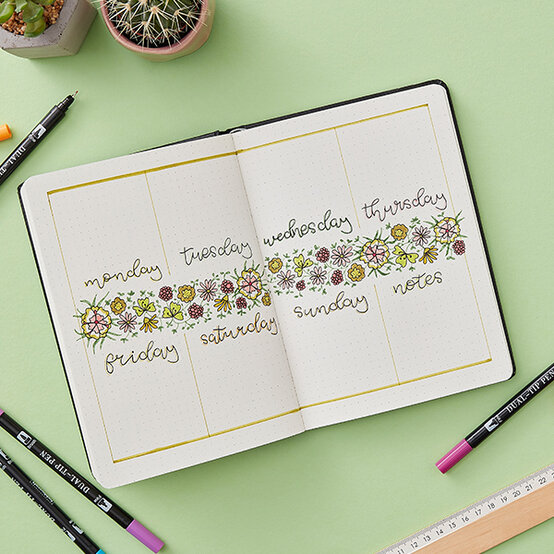 monday
tuesday
wednesday
thursday
friday
saturday
sunday
notes
DUAL-TIP PEN
DUAL-TIP PEN
11 12 13 14 15 16 17 18 19 20 21 22